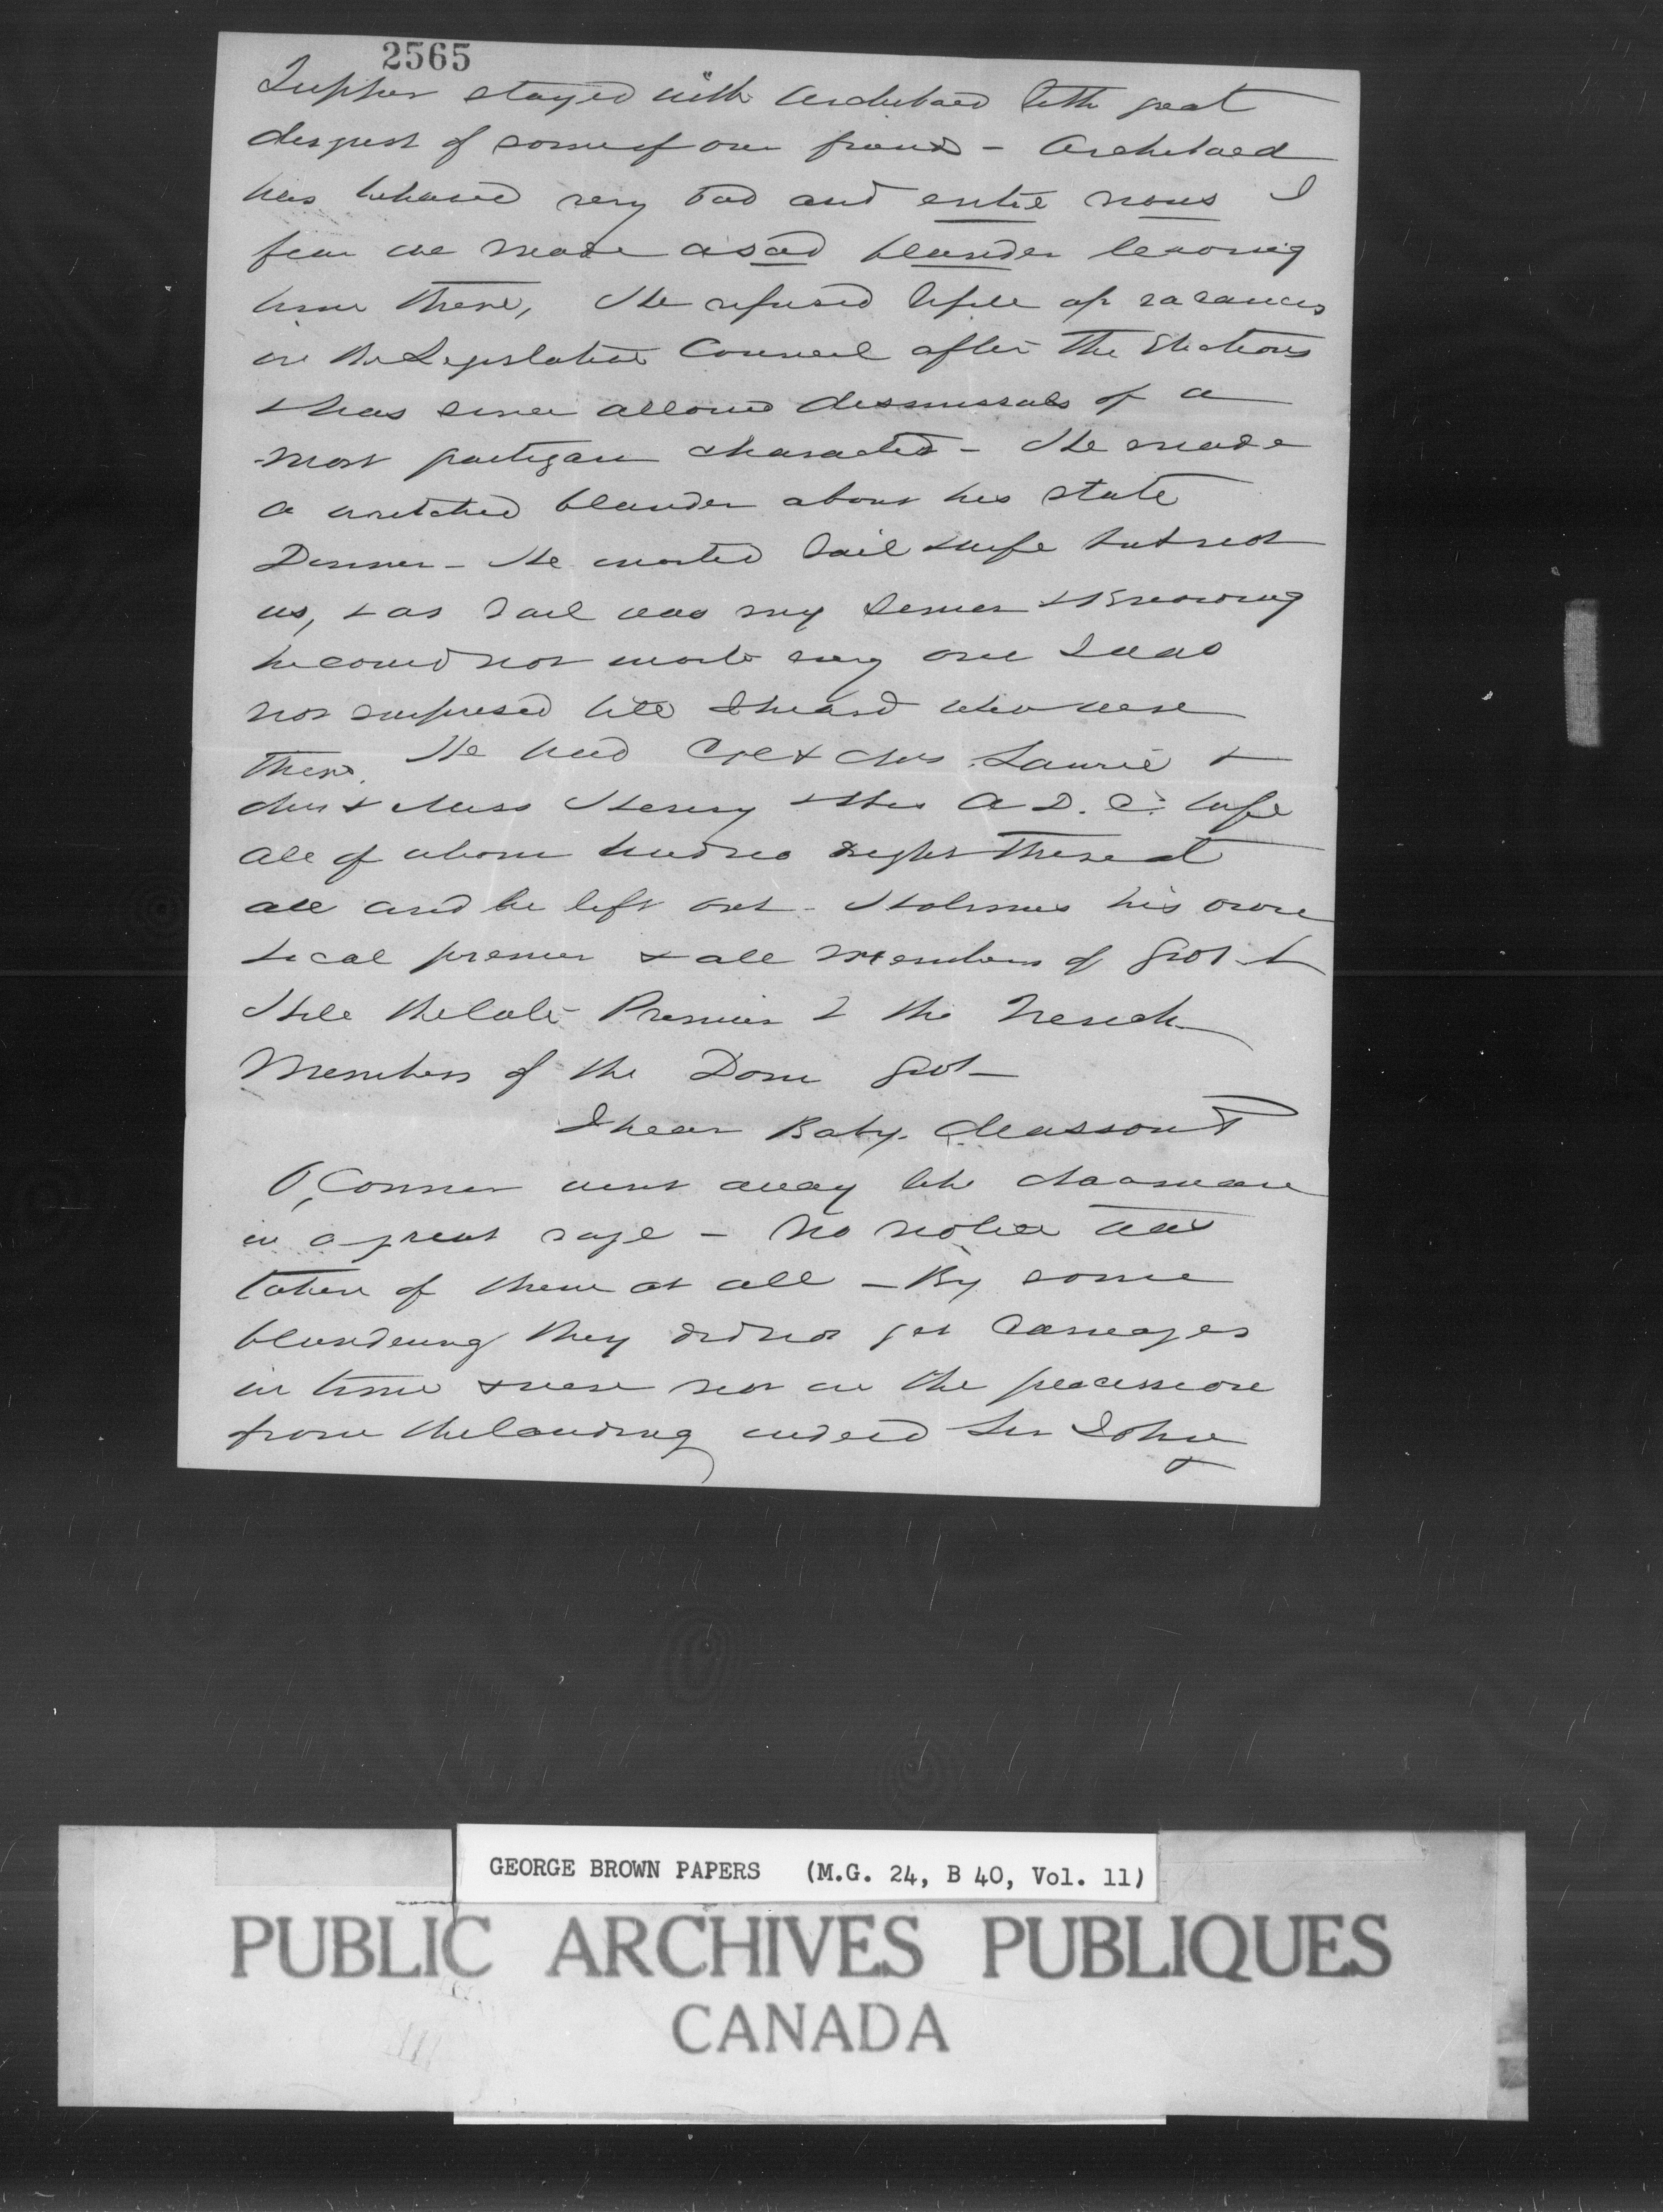 2565
Tupper stayed with Archibald to the great
disgust of some of our friends - Archibald
has behaved very bad and entre nous I
fear we made a sad blunder leaving
him there, He refused to fill up vacancies
in the Legislative Council after the Elections
& has since allowed dismissals of a
most partizan character - He made
a wretched blunder about his state
Dinner - He invited Vail & wife but not
us, & as Vail was my Senior & knowing
he could not invite every one I was
not surprised till I heard who were
there. He had Col & Mrs Laurie &
Mr & Miss Henry & his A.D.C. & wife
all of whom had no right there at
all and he left out Holmes his own
Local premier & all members of Govt &
Hill the late Premier & the French
Members of the Dom Govt -
I hear Baby, Masson &
O'Connor went away like
in a great rage - No notice was
taken of them at all - By some
blundering they did not get Carriages
in time & were not in the procession
from the landing indeed Sir John
&
GEORGE BROWN PAPERS (M.G. 24, B 40, Vol. 11)
PUBLIC ARCHIVES PUBLIQUES
CANADA